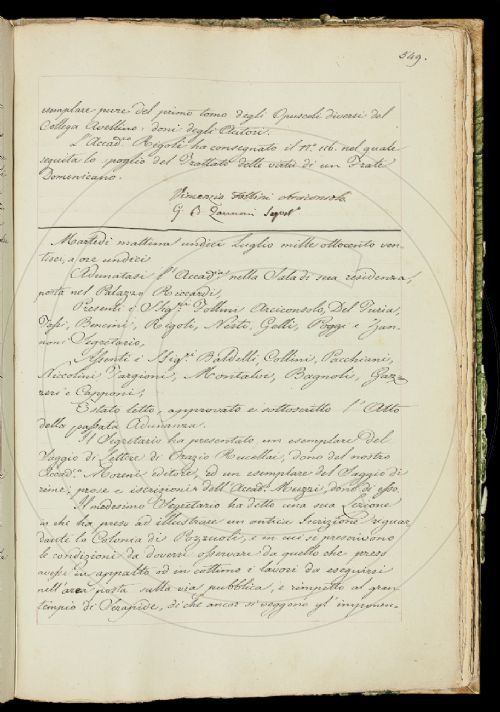 549.
esemplare pure del primo tomo degli Opuscoli diversi del
Collega Avellino: doni degli Autori.
L'Accad.co Rigoli ha consegnato il n.o 116. nel quale
seguita lo spoglio del Trattato delle virtù di un Frate
Domenicano.
Vincenzio Follini Arciconsolo
G. B. Zannoni Segret.o
Martedì mattina undici Luglio mille ottocento ven-
tisei, a ore undici
Adunatasi l'Accad.a nella Sala di sua residenza,
posta nel Palazzo Riccardi,
Presenti i Sig.ri Follini Arciconsolo, Del Furia,
Poggi e Zan-
noni Segretario,
Assenti i Sig.ri Baldelli, Collini, Pacchiani,
Niccolini, Targioni, Montalvi, Bagnoli, Gaz-
zeri e Capponi,
È stato letto, approvato e sottoscritto l'Atto
della passata Adunanza.
Il Segretario ha presentato un esemplare del
Saggio di Lettere di Orazio Rucellai, dono del nostro
Accad.o Moreni editore, ed un esemplare del Saggio di
rime, prose e iscrizioni dell'Accad. Muzzi, dono di esso.
Il medesimo Segretario ha detto una sua Lezione
in che ha preso ad illustrare un'antica Iscrizione riguar-
dante la Colonia di Pozzuoli, e in cui si prescrivono
le condizioni da doversi osservare da quello che preso
avesse in appalto od in cottimo i lavori da eseguirsi
nell'area posta sulla via pubblica, e rimpetto al gran
tempio di Serapide, di che ancor si veggono gl'imponen-